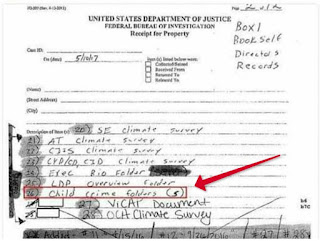 Page 2 of 2
UNITED STATES DEPARTMENT OF JUSTICE
FEDERAL BUREAU OF INVESTIGATION
Receipt for Property
Box 1
Book Self
Director's
Records
Case ID:
On (date) 5/10/17
item (s) listed below were:
Collected/Seized
Received From
Returned To
Released To
(Name)
(Street Address)
(City)
Description of Item (s): 20) SE climate survey
21) AT Climate survey
22) CJIS Climate survey
Climate survey
24) Exec Bio Folder
25) LDP Overview folder
26) Child crime folders (5)
27) ViCAP Document
28) OCH Climate Survey